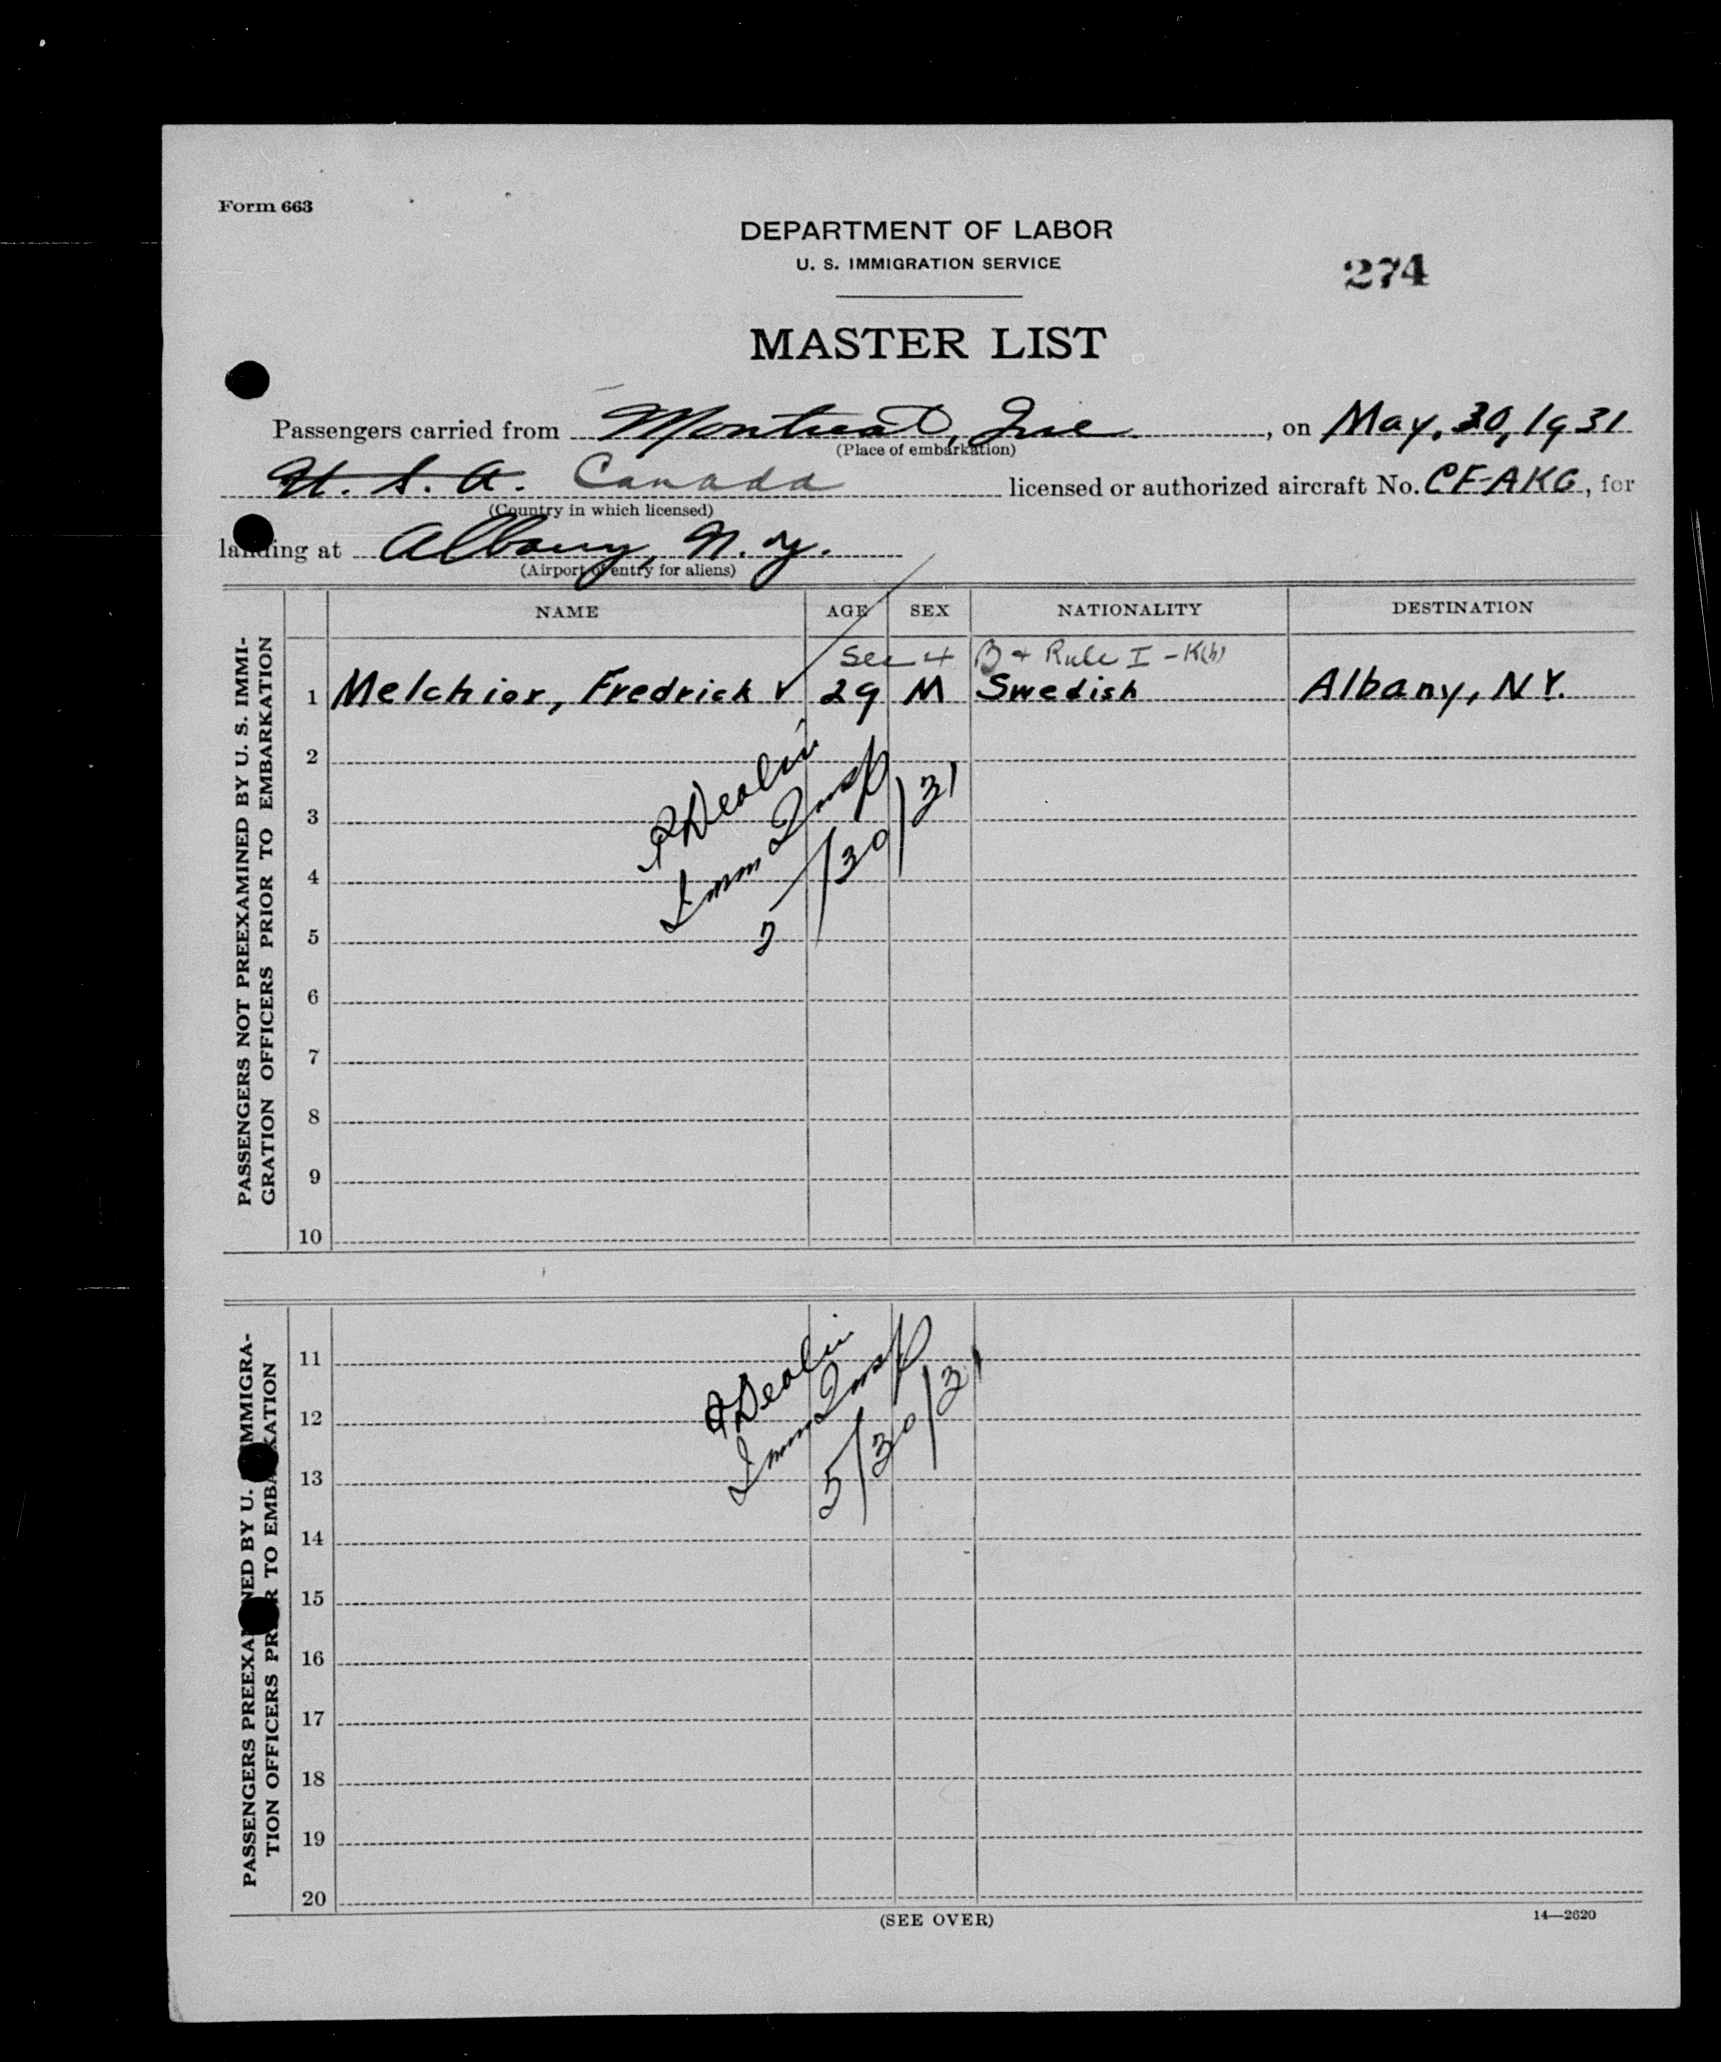 Form 663
DEPARTMENT OF LABOR
U. S. IMMIGRATION SERVICE
274
MASTER LIST
Passengers carried from Montreal, Que. , on May, 30, 1931
(Place of embarkation)
U. S. A. Canada licensed or authorized aircraft No. CF-AKG, for
(Country in which licensed)
landing at Albany, N. Y.
(Airport of entry for aliens)
NAME AGE SEX NATIONALITY DESTINATION
Sec 4 B & Rule I - K(h)
1 Melchior, Fredrick v 29 M Swedish Albany, N.Y.
2
3
4
5
6
7
8
9
10
Imm Insp
5/30/31
PASSENGERS NOT PREEXAMINED BY U. S. IMMI-
GRATION OFFICERS PRIOR TO EMBARKATION
11
12
13
14
15
16
17
18
19
20
Imm Insp
5/30/31
PASSENGERS PREEXAMINED BY U. S. IMMIGRA-
TION OFFICERS PRIOR TO EMBARKATION
(SEE OVER)
14—2620